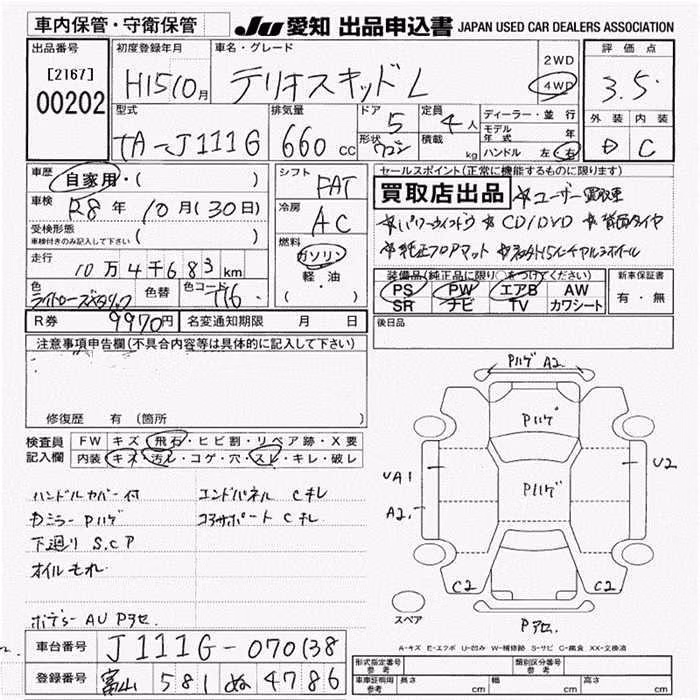 車内保管・守衛保管 JU 愛知 出品申込書 JAPAN USED CAR DEALERS ASSOCIATION
出品番号 初度登録年月 車名・グレード 評価点
[2167]
00202 H15 10月 テリオスキッド L 2WD 4WD 3.5
型式 排気量 ドア 定員 ディーラー・並行 外装 内装
TA-J111G 660cc 5 4人 モデル年式 年 D C
形状 ワゴン 積載 kg ハンドル 左 右
車歴 自家用・( ) シフト FAT セールスポイント(正常に機能するものに限ります)
車検 R8年10月(30日) 冷房 AC 買取店出品 ☆ユーザー買取車
受検形態 ( )
車検付きのみ記入して下さい
☆パワーウインドウ ☆CD/DVD ☆背面タイヤ
走行 10万4千683km 燃料 ガソリン ☆純正フロアマット ☆社外15インチアルミホイール
軽・油
( )
色 ライトローズメタリック 色替 色コード T16 装備品(純正品に限り○をつけてください) 新車保証書
PS PW エアB AW 有・無
SR ナビ TV カワシート
R券 9970円 名変通知期限 月 日 後日品
注意事項申告欄(不具合内容等は具体的に記入して下さい)
修復歴 有 (箇所 )
検査員記入欄 FW キズ・飛石・ヒビ割・リペア跡・X要
内装 キズ・汚れ・コゲ・穴・スレ・キレ・破レ
ハンドルカバー付 エンドパネル Cキレ
Dミラー Pハゲ コアサポート Cキレ
下廻り S.C.P
オイルモレ
ボデー AU Pアセ
Pハゲ A2
Pハゲ
Pハゲ
UA1 U2
A2
C2 C2
スペア Pアセ
A-キズ E-エクボ U-凹み W-補修跡 S-サビ C-腐食 XX-交換済
車台番号 J111G-070138
登録番号 富山 581 ぬ 4786
形式指定番号 参考 類別区分番号 参考
車庫証明用 参考 長さ cm 幅 cm 高さ cm